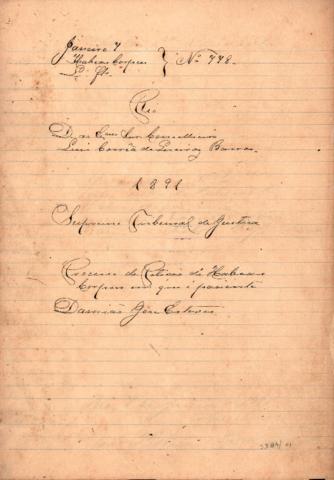 Janeiro 7
Habeas Corpus } Nº 778.
D. ao Exmo Snr. Conselheiro
Luis Corrêa de Queiroz Barros.
1891
Supremo Tribunal de Justiça
Processo de Petição de Habeas
Corpus em que é paciente
Damião José Esteves.